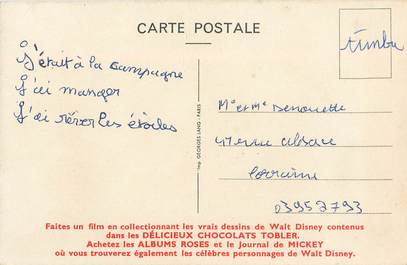 CARTE POSTALE
timbre
J'étais à la campagne
J'ai manger
J'ai rêver les étoiles
Mr et Me Denouette
47 rue alsace
lorraine
03952793
Imp. GEORGES LANG - PARIS
Faites un film en collectionnant les vrais dessins de Walt Disney contenus
dans les DÉLICIEUX CHOCOLATS TOBLER.
Achetez les ALBUMS ROSES et le Journal de MICKEY
où vous trouverez également les célèbres personnages de Walt Disney.